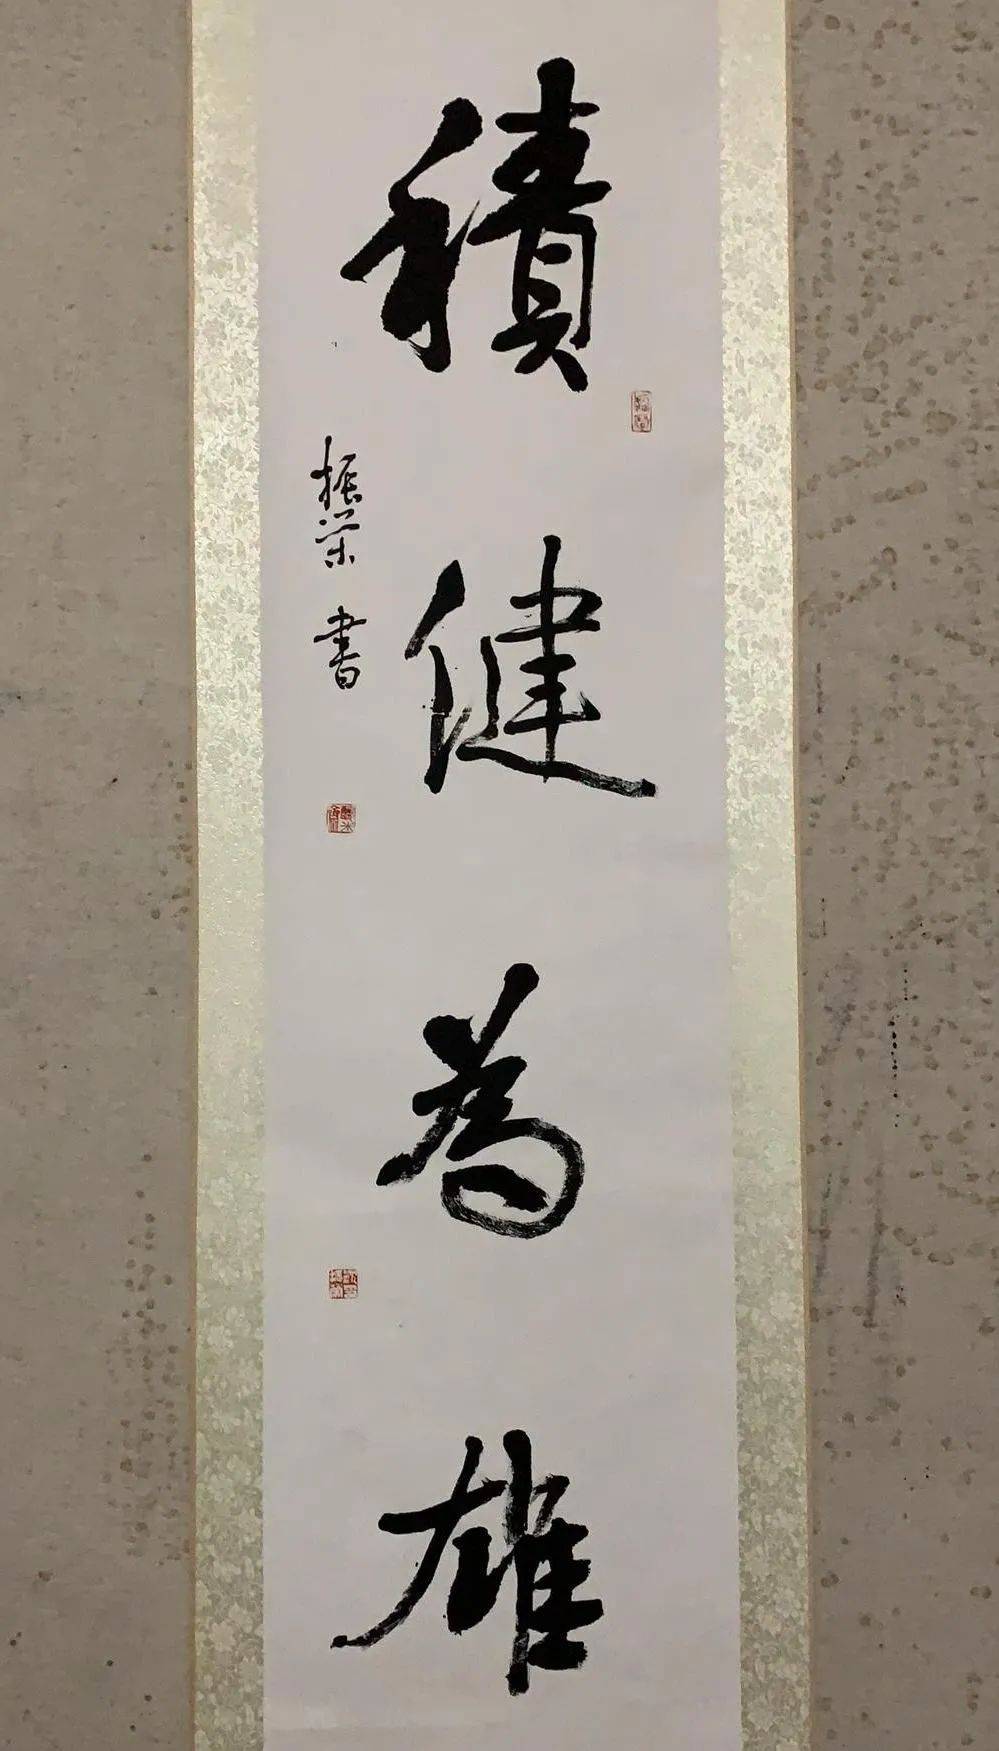 積健為雄
振榮書